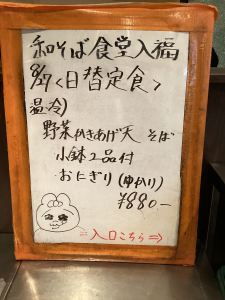 和そば食堂入福
8/27〈日替定食〉
温冷)
野菜かきあげ天 そば
小鉢2品付
おにぎり(ゆかり)
¥880-
⇒入口こちら⇒